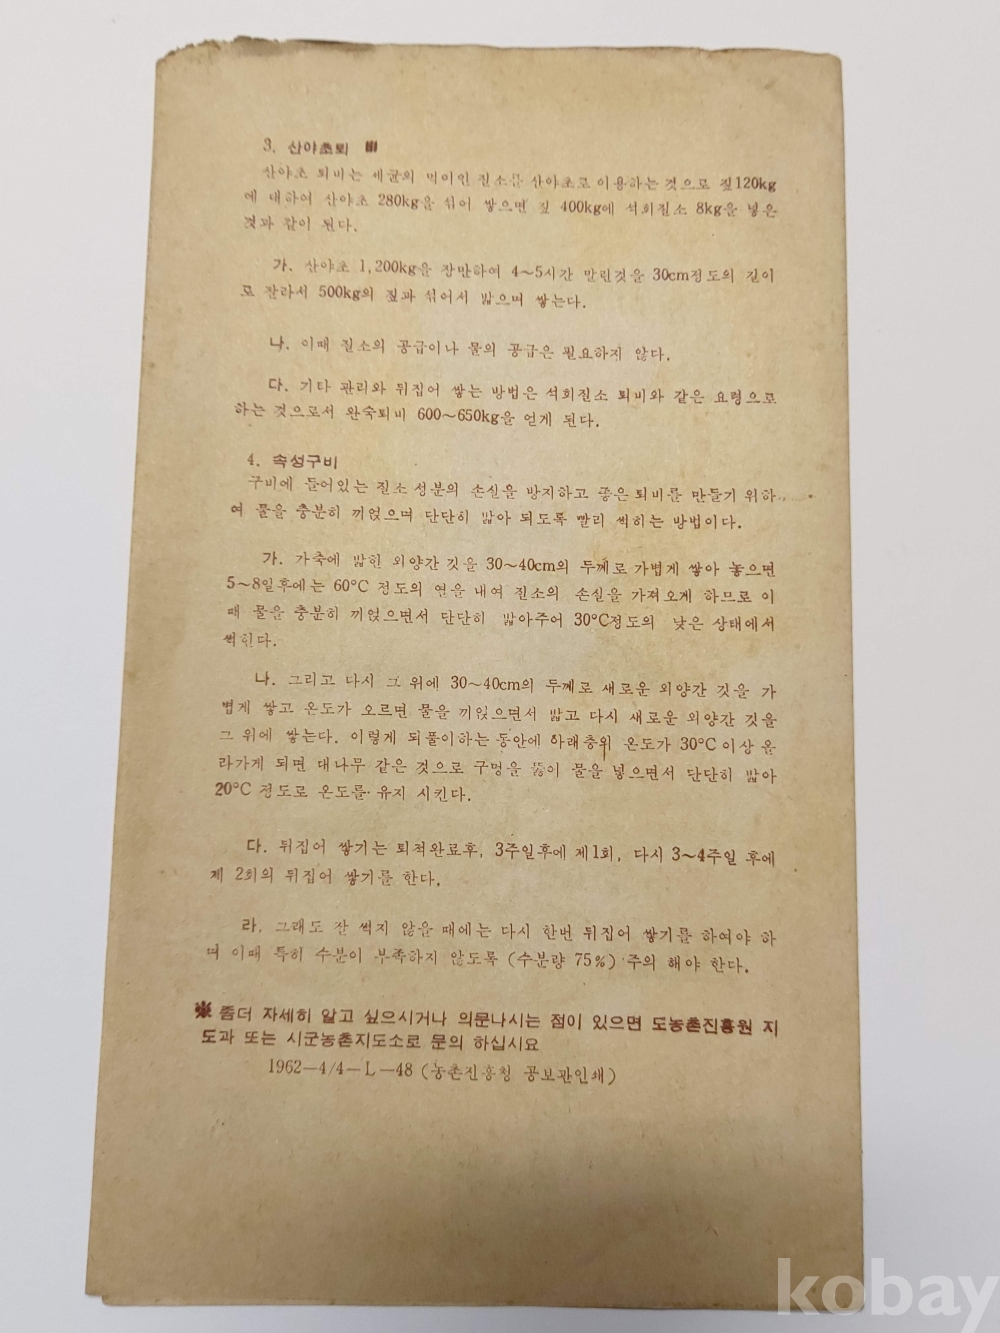 3. 산야초퇴 비
산야초 퇴비는 세균의 먹이인 질소를 산야초로 이용하는 것으로 짚120kg
에 대하여 산야초 280kg을 섞어 쌓으면 짚 400kg에 석회질소 8kg을 넣은
것과 같이 된다.
가. 산야초 1,200kg을 장만하여 4~5시간 말린것을 30cm정도의 길이
로 잘라서 500kg의 짚과 섞어서 밟으며 쌓는다.
나. 이때 질소의 공급이나 물의 공급은 필요하지 않다.
다. 기타 관리와 뒤집어 쌓는 방법은 석회질소 퇴비와 같은 요령으로
하는 것으로서 완숙퇴비 600~650kg을 얻게 된다.
4. 속성구비
구비에 들어있는 질소성분의 손실을 방지하고 좋은퇴비를 만들기 위하
여 물을 충분히 끼얹으며 단단히 밟아 되도록 빨리 썩히는 방법이다.
가. 가축에 밟힌 외양간 깃을 30~40cm의 두께로 가볍게 쌓아 놓으면
5~8일후에는 60°C 정도의 열을 내여 질소의 손실을 가져오게 하므로 이
때 물을 충분히 끼얹으면서 단단히 밟아주어 30°C정도의 낮은 상태에서
썩힌다.
나. 그리고 다시 그 위에 30~40cm의 두께로 새로운 외양간 깃을 가
볍게 쌓고 온도가 오르면 물을 끼얹으면서 밟고 다시 새로운 외양간 깃을
그 위에 쌓는다. 이렇게 되풀이하는 동안에 아래층위 온도가 30°C이상 올
라가게 되면 대나무 같은 것으로 구멍을 뚫어 물을 넣으면서 단단히 밟아
20°C 정도로 온도를 유지 시킨다.
다. 뒤집어 쌓기는 퇴적완료후, 3주일후에 제1회, 다시 3~4주일 후에
제 2회의 뒤집어 쌓기를 한다.
라. 그래도 잘 썩지 않을 때에는 다시 한번 뒤집어 쌓기를 하여야 하
며 이때 특히 수분이 부족하지 않도록 (수분량 75%) 주의 해야 한다.
※ 좀더 자세히 알고 싶으시거나 의문나시는 점이 있으면 도농촌진흥원 지
도과 또는 시군농촌지도소로 문의 하십시요
1962—4/4—L—48 (농촌진흥청 공보관인쇄)
kobay